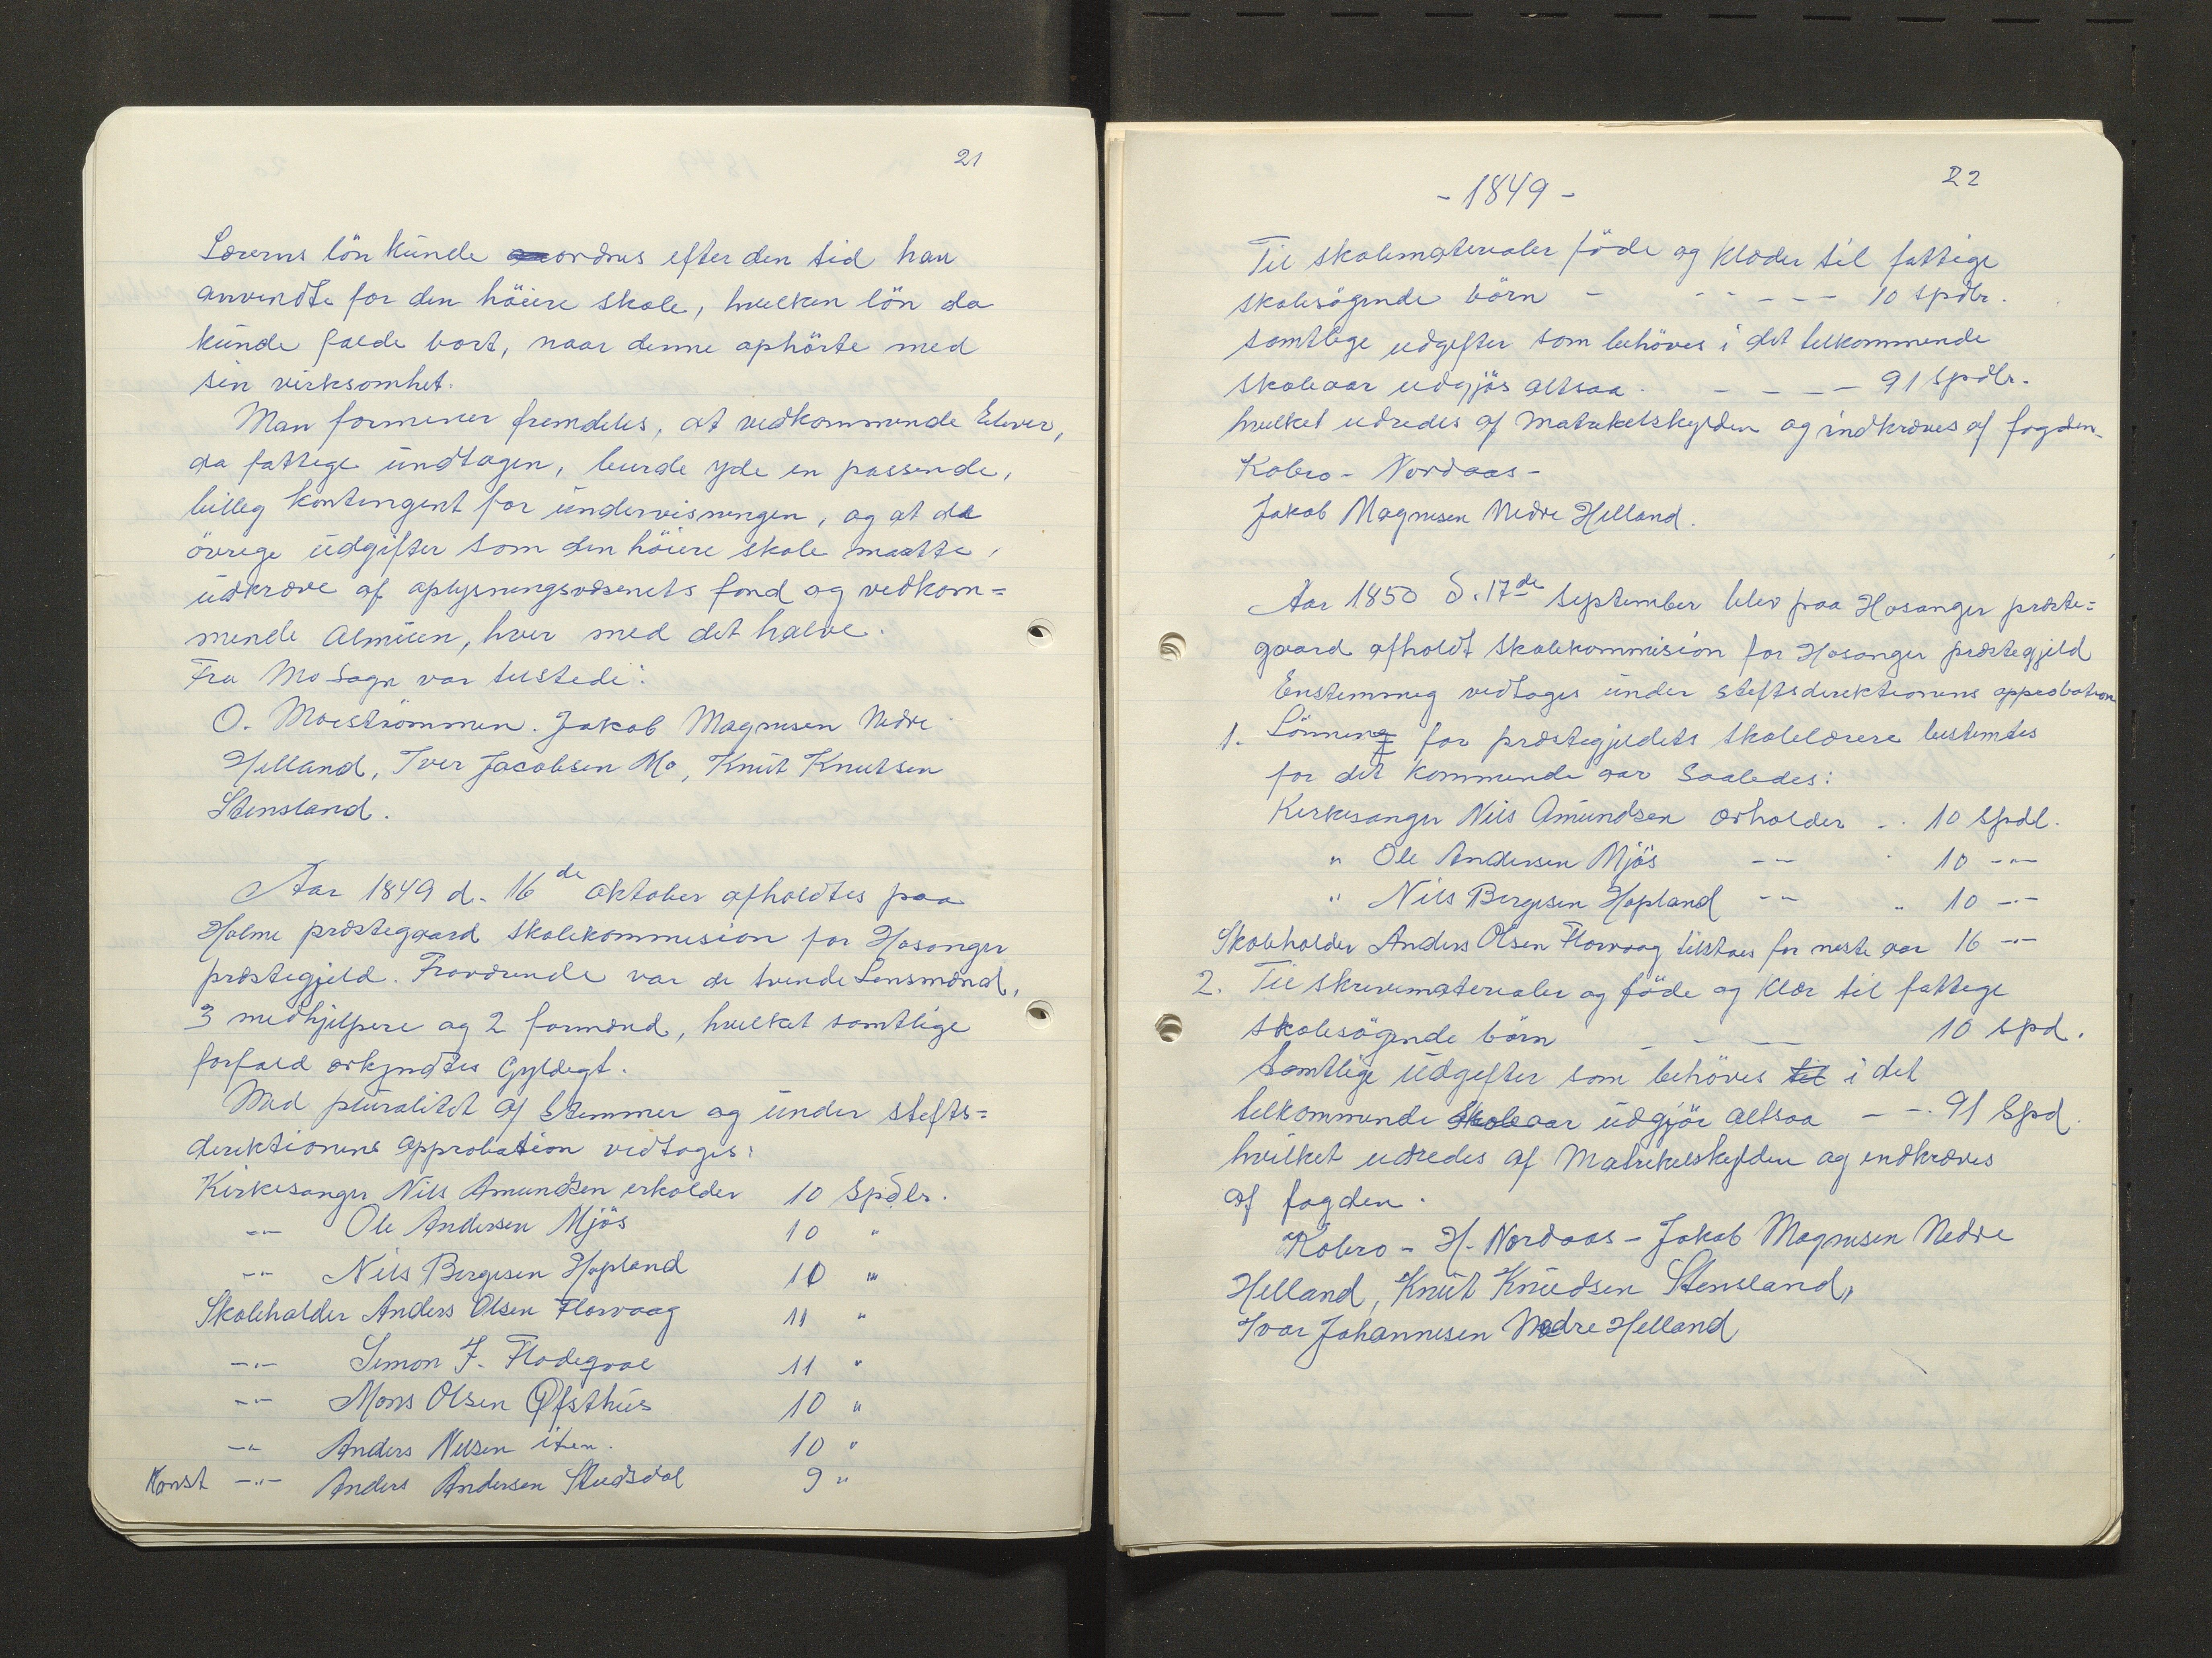 21
Lærerns lön kunde ordnes efter den tid han
anvendte for den höiere skole, hvelken lön da
kunde falde bort, naar denne ophörte med
sin virksomhet.
Man formener fremdeles, at vedkommende Elever,
da fattege undtagen, burde yde en passende,
billeg kontengent for undervisningen, og at de
övrege udgifter som den höiere skole maatte,
udkræve af oplysningsvæsenets fond og vedkom=
mende Almuen, hver med det halve.
Fra Mo Sogn var tilstede:
O. Moeströmmen. Jakob Magnesen Nedre
Helland, Iver Jacobsen Mo, Knut Knutsen
Stensland.
Aar 1849 d. 16de oktober afholdtes paa
Holme præstegaard skolekommision for Hosanger
præstegjeld. Fraværende var de tvende Lensmænd,
3 medhjelpere og 2 formænd, hvelket samtlige
forfald erkjendtes Gyldegt.
Med pluralitet af Stemmer og under stefts=
derektionens approbation vedtoges:
Kirkesanger Nils Amundsen erholder 10 Spdlr.
-"- Ole Andersen Mjös 10 "
-"- Nils Bergesen Hopland 10 "
Skoleholder Anders Olsen Florvaag 11 "
-"- Simon J. Flodegval 11 "
-"- Mons Olsen Öfsthus 10 "
-"- Anders Nilsen iten. 10 "
Konst -"- Anders Andersen Stedsdal 9 "
22
- 1849 -
Til skolematerialer föde og klæder til fattige
skolesögende börn - - - - - 10 spdlr.
Samtlege udgifter som behöves i det telkommende
skoleaar udgjös altsaa - - - - 91 spdlr.
hvelket udredes af Matrekelskylden og indkræves af fogden-
Kobro - Nordaas -
Jakob Magnesen Nedre Helland.
Aar 1850 d. 17de September blev paa Hosanger præste=
gaard afholdt skolekommision for Hosanger præstegjeld
Enstemmeg vedtoges under steftsderektionens approbation
1. Lönning for præstegjeldets skolelærere bestemtes
for det kommende aar saaledes:
Kerkesanger Nils Amundsen erholder - . 10 Spdl.
" Ole Andersen Mjös -- 10 -"-
" Nils Bergesen Hopland -- 10 -"-
Skoleholder Anders Olsen Florvaag tilstaes for neste aar 16 -"-
2. Til skrivematerialer og föde og klær til fattege
skolesögende börn - - - 10 spd.
Samtlige udgefter som behöves til i det
telkommende skoleaar udgjör altsaa - -. 91 Spd.
hvilket udredes af Matrikelskylden og indkræves
af fogden.
Kobro - H. Nordaas - Jakob Magnesen Nedre
Helland, Knut Knudsen Stensland,
Ivar Johannesen Nedre Helland